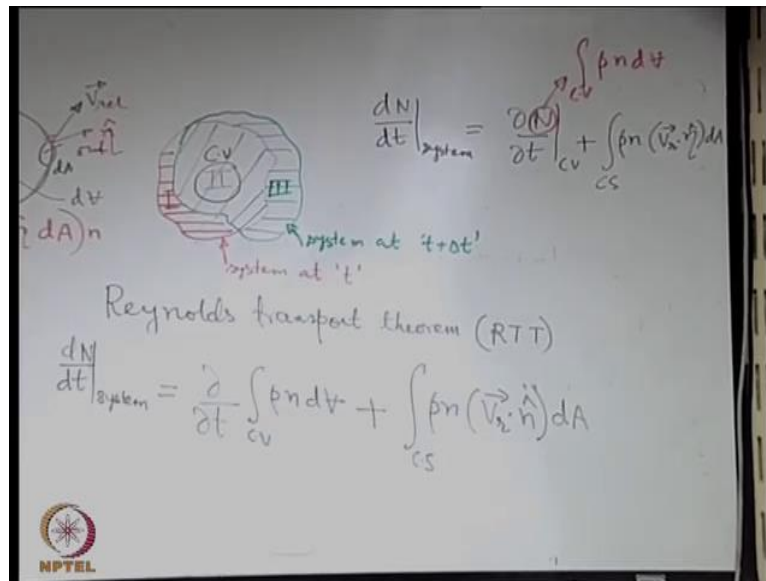 V⃗rel
n̂
out
dA
d∀
dA)n
C.V
I
II
III
system at 't+Δt'
system at 't'
∫CV ρn d∀
dN/dt|system = ∂(N)/∂t|CV + ∫CS ρn (V⃗r·η̂) dA
Reynolds transport theorem (RTT)
dN/dt|system = ∂/∂t ∫CV ρn d∀ + ∫CS ρn (V⃗r·n̂) dA
NPTEL